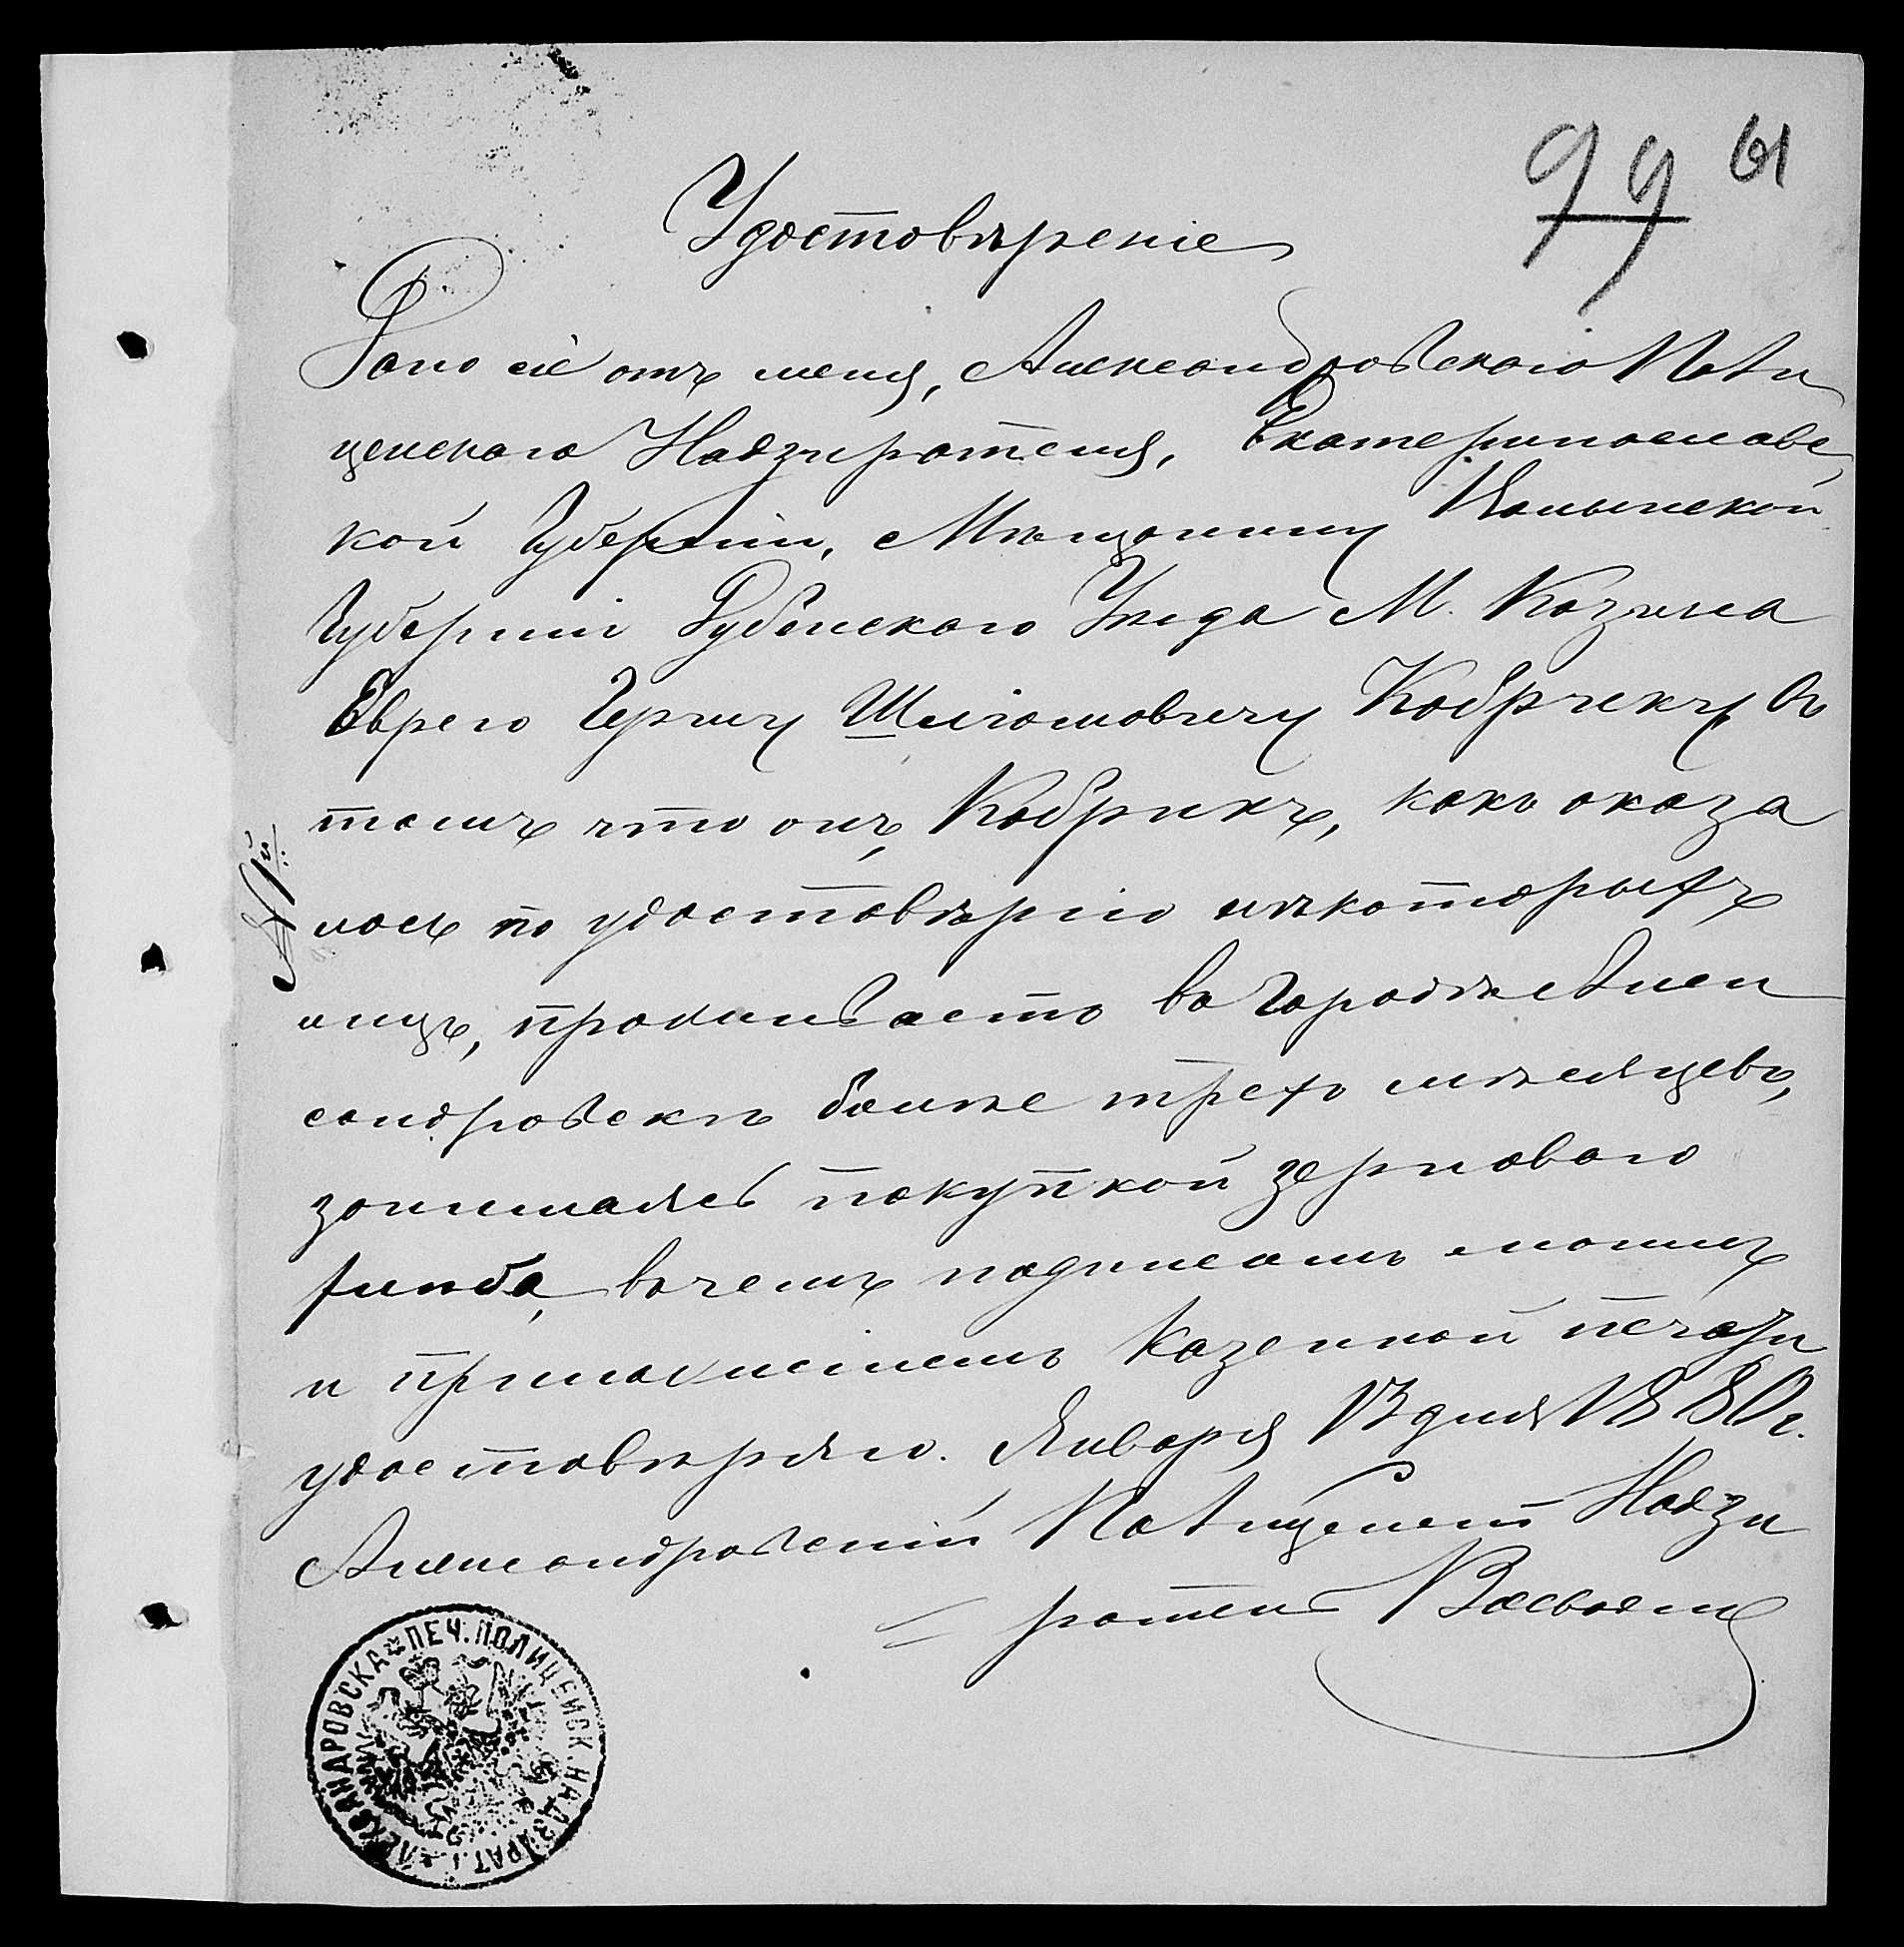 99 61
Удостовѣреніе
Дано сіе отъ меня, Александровскаго Поли
цейскаго Надзирателя, Екатеринославс
кой Губерніи, Мѣщанину Волынской
Губерніи Дубенскаго Уѣзда М. Козина
Еврею Гершу Шліомовичу Кобрику въ
томъ что онъ, Кобрикъ, какъ оказа
лось по удостовѣрію нѣкоторыхъ
лицъ, проживаетъ въ Городѣ Алек
сандровскѣ болѣе трехъ мѣсяцевъ,
занимаясь покупкой зерноваго
хлѣба, въ чемъ подписомъ моимъ
и приложеніемъ Казенной печати
удостовѣряю. Января 13 дня 1880 г.
Александровскій Полицейскій Надзи
ратель
ПЕЧ. ПОЛИЦЕЙСК. НАДЗИРАТ. Г. АЛЕКСАНДРОВСКА